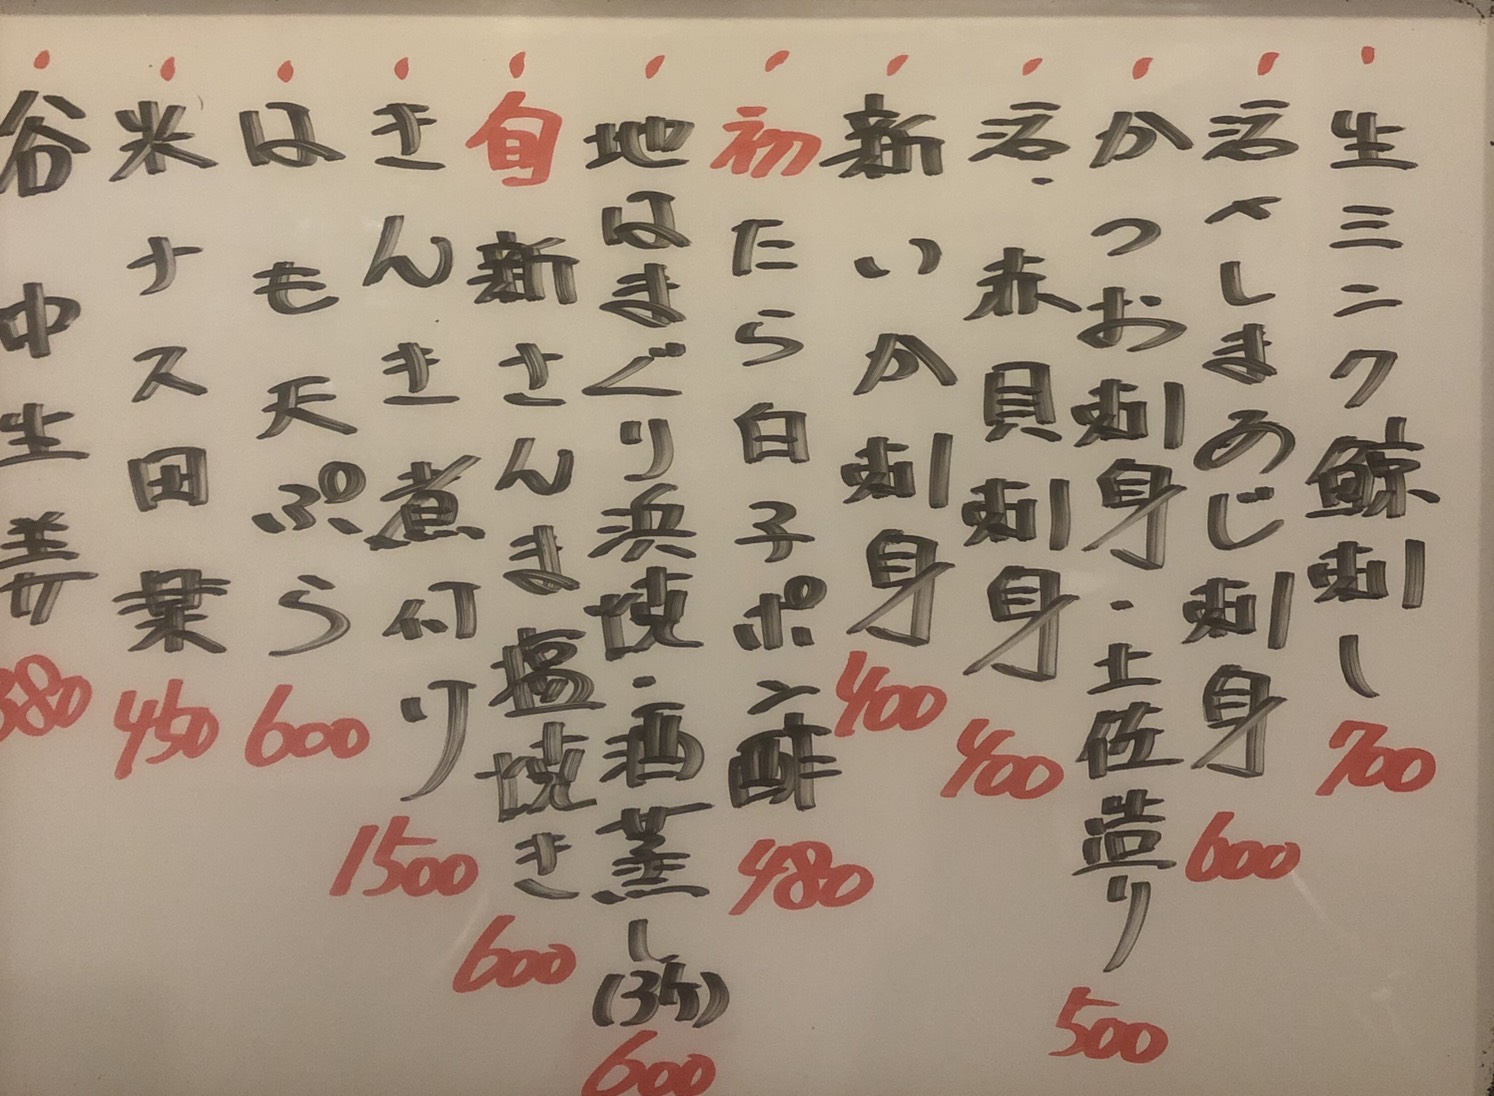 ・生ミンク鯨刺し 700
・活〆しまあじ刺身 600
・かつお刺身・土佐造り 500
・活・赤貝刺身 400
・新いか刺身 400
・初たら白子ポン酢 480
・地はまぐり浜焼・酒蒸し(3ケ) 600
・旬新さんま塩焼き 600
・きんき煮付け 1500
・はも天ぷら 600
・米ナス田楽 450
・谷中生姜 380